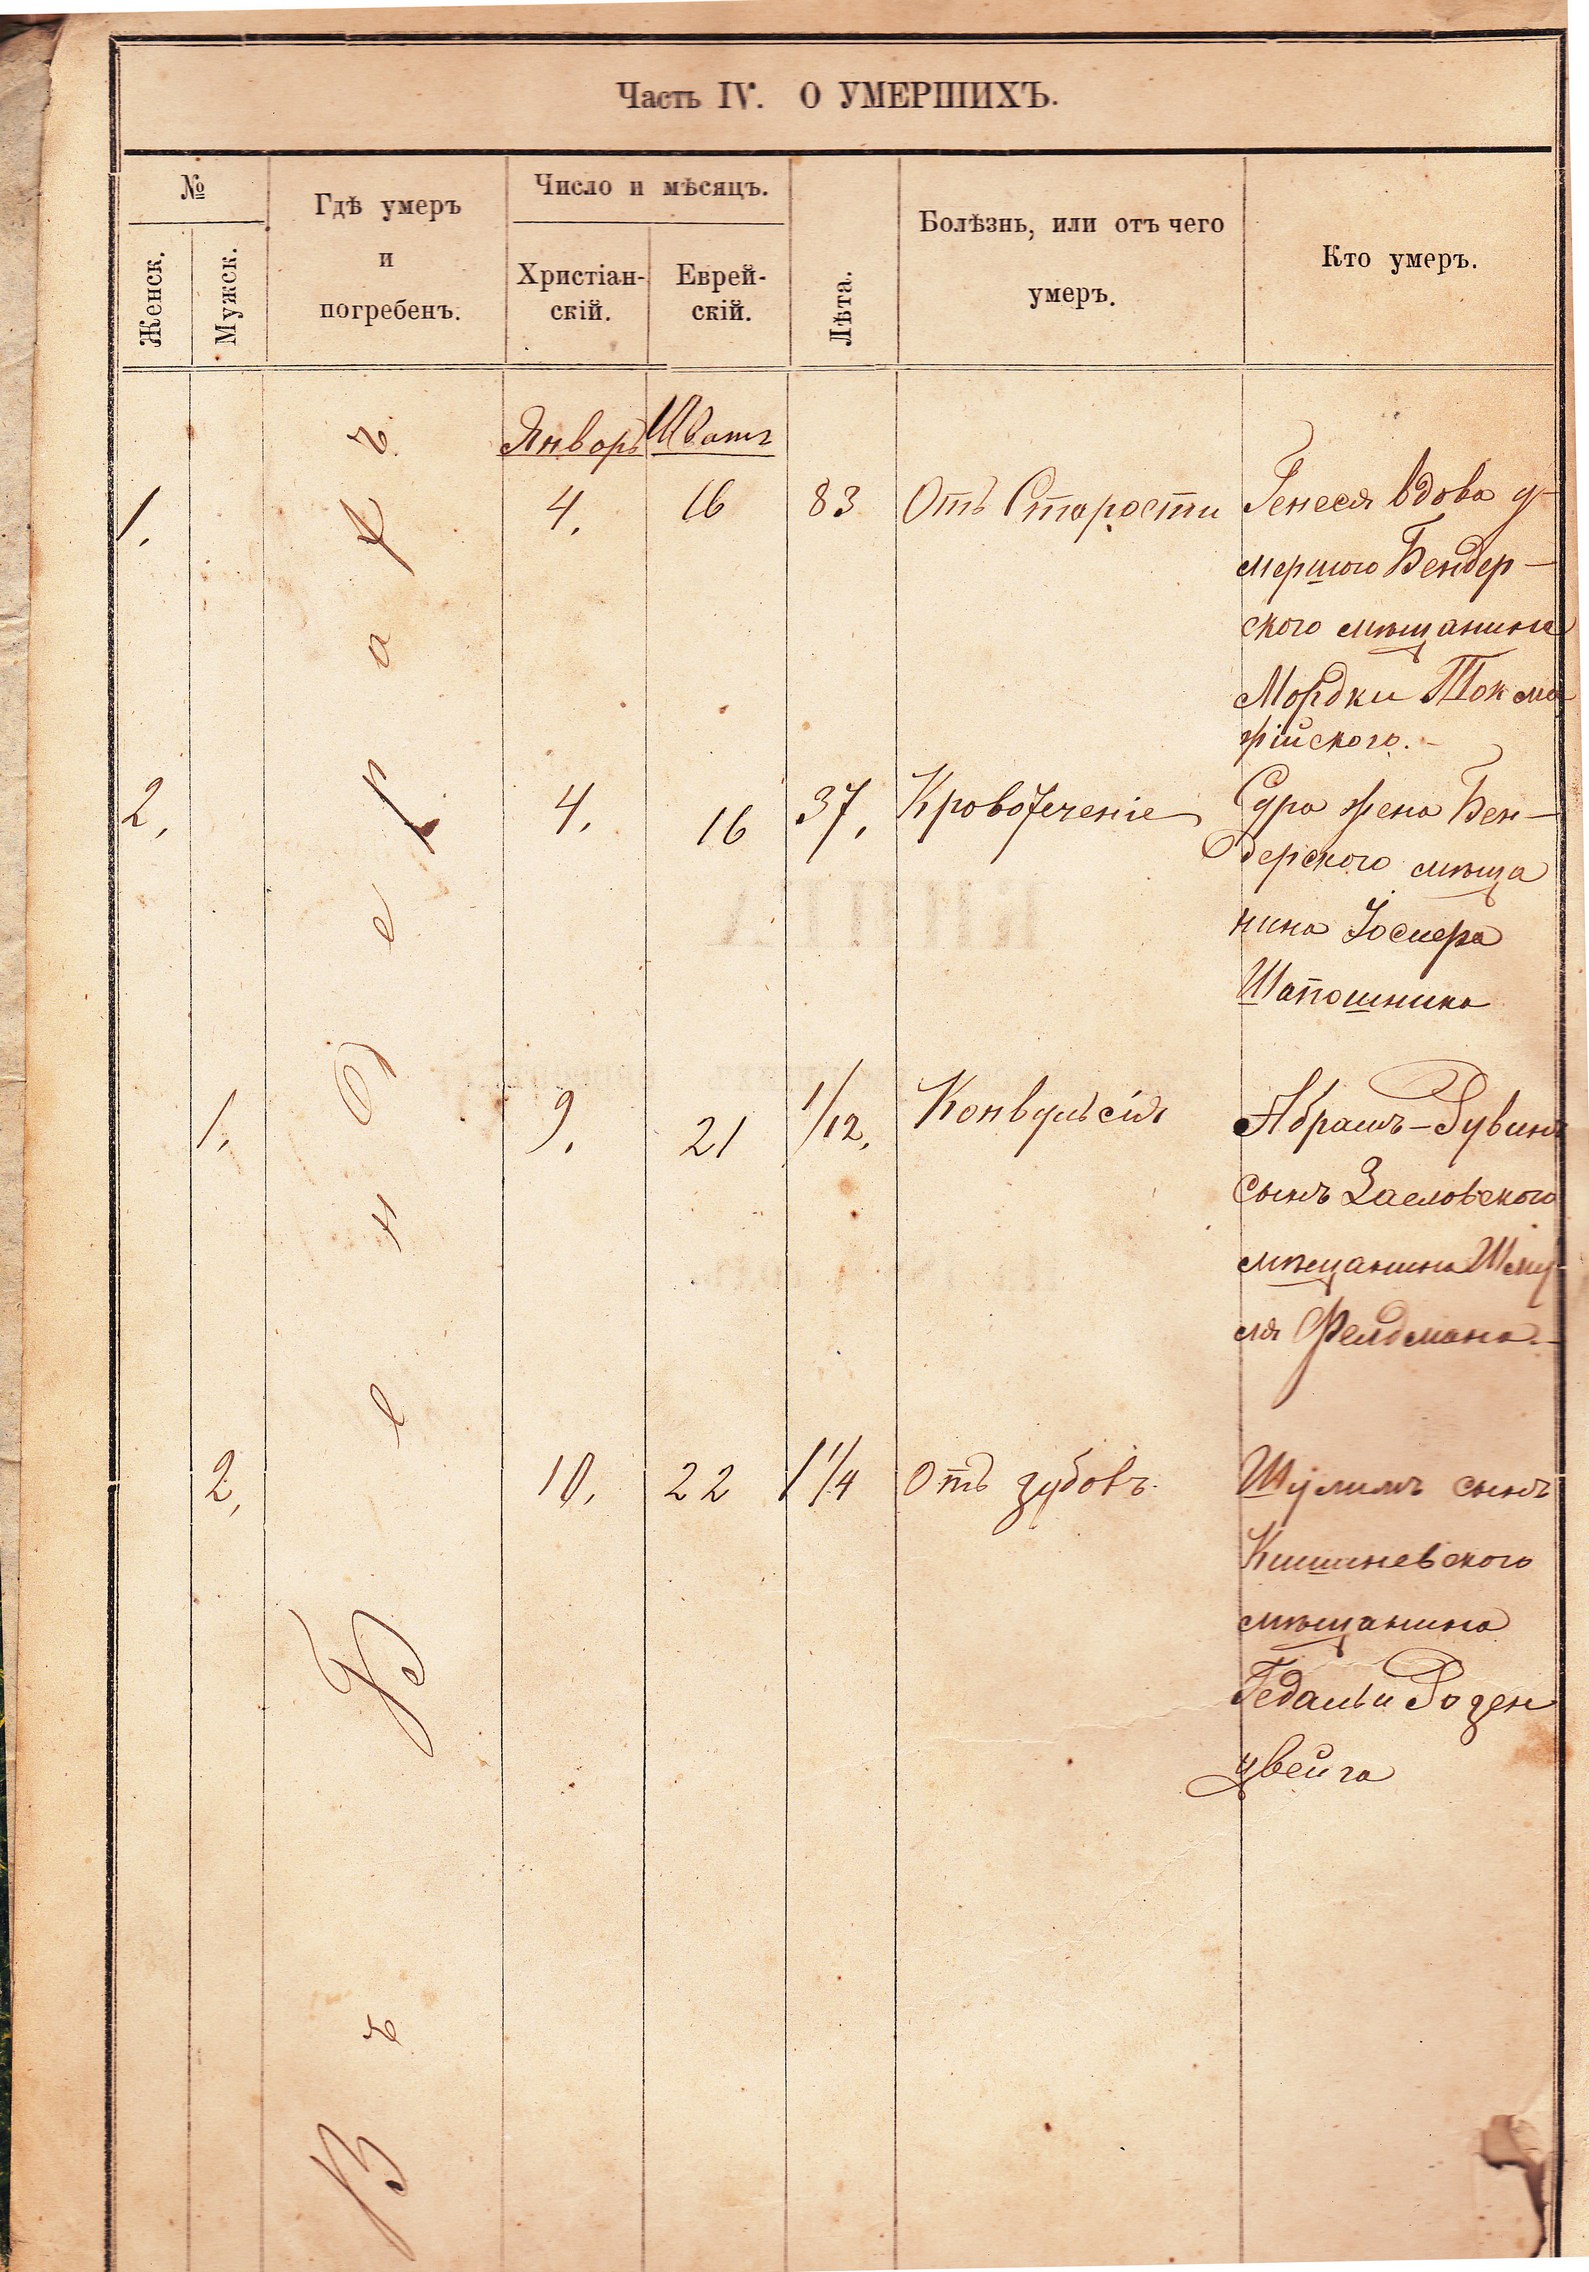 Часть IV. О УМЕРШИХЪ.
№
Женск.
Мужск.
Гдѣ умеръ
и
погребенъ.
Число и мѣсяцъ.
Христіан-
скій.
Еврей-
скій.
Лѣта.
Болѣзнь, или отъ чего
умеръ.
Кто умеръ.
Въ Бендерахъ
Январь Шватъ
1. 4. 16 83 Отъ Старости Генеся вдова у-
мершого Бендер-
ского мѣщанина
Мордки
2. 4. 16 37. Кровотеченіе Сура жена Бен-
дерского мѣща
нина
Шапошника
1. 9. 21 1/12. Конвульсія Абрамъ-Рувинъ
сынъ Засловского
мѣщанина Шму
ля Фелдмана.-
2. 10. 22 1 1/4 Отъ зубовъ. Шулимъ сынъ
Кишиневского
мѣщанина
Гедальи Розен
цвейга